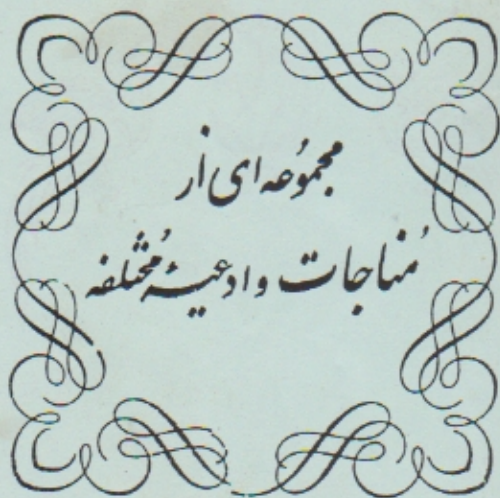 مجموُعه ای از
مُناجات و ادعیهٔ مُختلفه